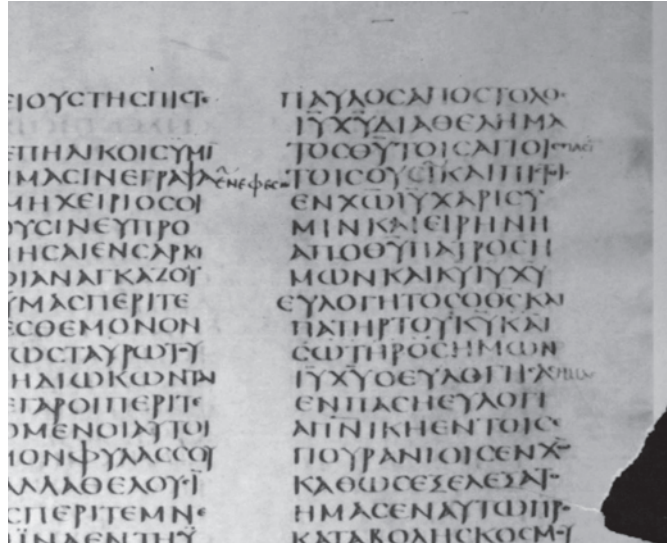 ΕΙΟΥϹΤΗϹΠΙϹΤΕ
ΕΠΗΛΙΚΟΙϹΥΜΙ
ΜΑϹΙΝΕΓΡΑΨΑ
ΜΗΧΕΙΡΙΟϹΟΙ
ΟΥϹΙΝΕΥΠΡΟ
ΠΗϹΑΙΕΝϹΑΡΚΙ
ΟΙΑΝΑΓΚΑΖΟΥ
ΥΜΑϹΠΕΡΙΤΕ
ΕϹΘΕΜΟΝΟΝ
ΩϹΤΑΥΡΩΤΟΥ
ΗΔΙΩΚΩΝΤΑΙ
ΕΓΑΡΟΙΠΕΡΙΤΕ
ΟΜΕΝΟΙΑΥΤΟΙ
ΜΟΝΦΥΛΑϹϹΟΥ
ΑΛΛΑΘΕΛΟΥϹΙ
ϹΠΕΡΙΤΕΜΝΕ
ΪΝΑΕΝΤΗΥ
ΠΑΥΛΟϹΑΠΟϹΤΟΛΟϹ
ΙΥΧΥΔΙΑΘΕΛΗΜΑ
ΤΟϹΘΥΤΟΙϹΑΓΙΟΙϹ
ΕΝΕΦΕϹΩ
ΤΟΙϹΟΥϹΙΚΑΙΠΙϹΤΟΙ
ΕΝΧΩΙΥΧΑΡΙϹΥ
ΜΙΝΚΑΙΕΙΡΗΝΗ
ΑΠΟΘΥΠΑΤΡΟϹΗ
ΜΩΝΚΑΙΚΥΙΥΧΥ
ΕΥΛΟΓΗΤΟϹΟΘϹΚΑΙ
ΠΑΤΗΡΤΟΥΚΥΚΑΙ
ϹΩΤΗΡΟϹΗΜΩΝ
ΙΥΧΥΟΕΥΛΟΓΗϹΑϹ
ΕΝΠΑϹΗΕΥΛΟΓΙ
ΑΠΝΙΚΗΕΝΤΟΙϹΕ
ΠΟΥΡΑΝΙΟΙϹΕΝΧΩ
ΚΑΘΩϹΕΞΕΛΕΞΑΤΟ
ΗΜΑϹΕΝΑΥΤΩΠΡΟ
ΚΑΤΑΒΟΛΗϹΚΟϹΜΟΥ